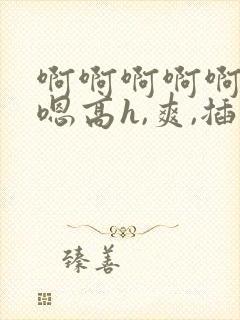 啊啊啊啊啊
嗯高h,爽,插
臻善